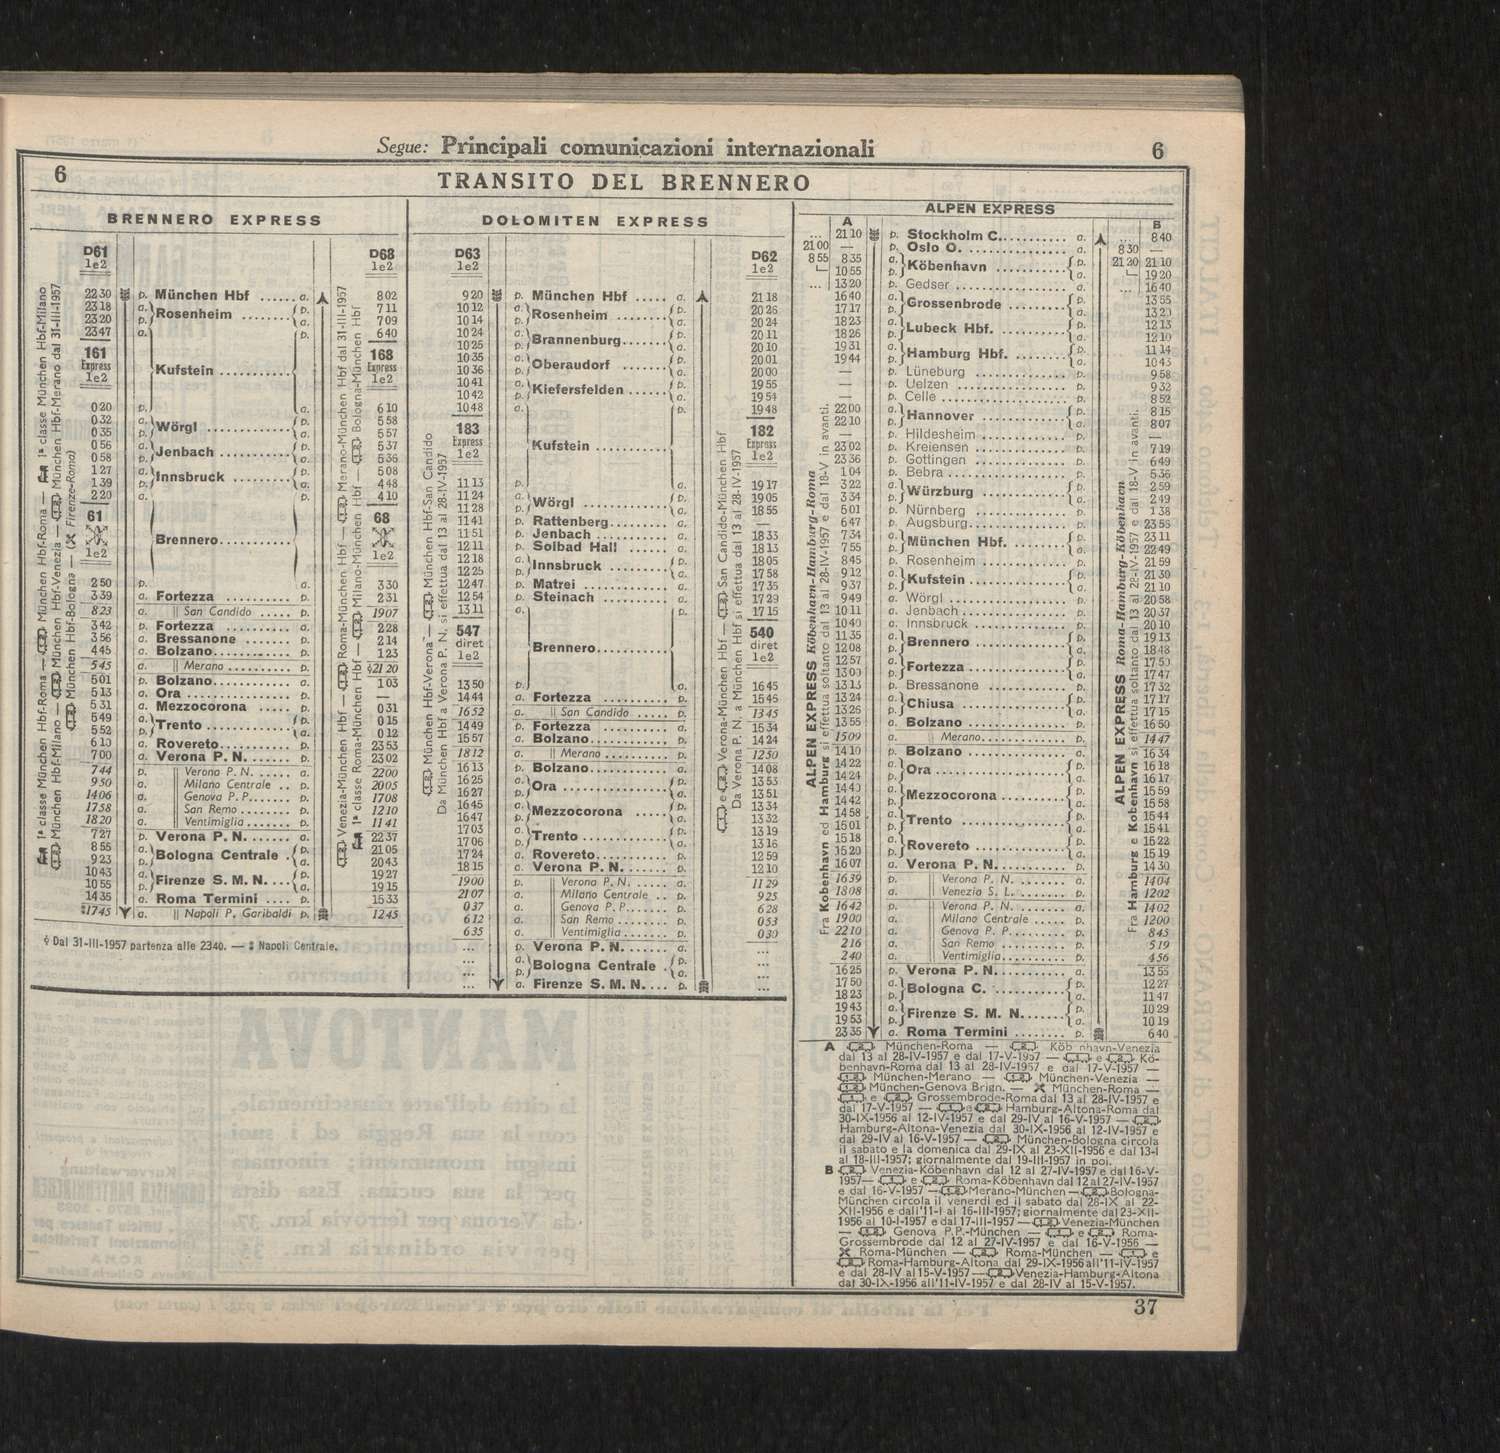 Segue: Principali comunicazioni internazionali 6
6 TRANSITO DEL BRENNERO
BRENNERO EXPRESS
D61 D68
1e2 1e2
22 30 p. München Hbf ...... a. 8 02
23 18 a. Rosenheim ........ p. 7 11
23 20 p. a. 7 09
23 47 a. p. 6 40
161 168
Express Express
1e2 Kufstein .......... 1e2
0 20 p. a. 6 10
0 32 a. Wörgl ............ p. 5 58
0 35 p. a. 5 57
0 56 a. Jenbach .......... p. 5 37
0 58 p. a. 5 36
1 27 a. Innsbruck ........ p. 5 08
1 39 p. a. 4 48
2 20 a. p. 4 10
61 68
1e2 Brennero........... 1e2
2 50 p. a. 3 30
3 39 a. Fortezza .......... p. 2 31
8 23 a. || San Candido ..... p. 19 07
3 42 p. Fortezza .......... a. 2 28
3 56 a. Bressanone ....... p. 2 14
4 45 a. Bolzano........... p. 1 23
5 45 a. || Merano .......... p. 21 20
5 01 p. Bolzano........... a. 1 03
5 13 a. Ora ............... p. —
5 31 a. Mezzocorona ..... p. 0 31
5 49 a. Trento ............ p. 0 15
5 52 p. a. 0 12
6 10 a. Rovereto.......... p. 23 53
7 00 a. Verona P. N. ...... p. 23 02
7 44 p. Verona P. N. ..... a. 22 00
9 50 a. Milano Centrale .. p. 20 05
14 06 a. Genova P. P....... p. 17 08
17 58 a. San Remo ........ p. 12 10
18 20 a. Ventimiglia ....... p. 11 41
7 27 p. Verona P. N. ...... a. 22 37
8 55 a. Bologna Centrale . p. 21 05
9 23 p. a. 20 43
10 43 a. Firenze S. M. N. ... p. 19 27
10 55 p. a. 19 15
14 35 a. Roma Termini .... p. 15 33
17 45 a. || Napoli P. Garibaldi p. 12 45
1ª classe München Hbf-Roma — München Hbf-Roma — 1ª classe München Hbf-Milano
München Hbf-Milano — München Hbf-Venezia — München Hbf-Merano dal 31-III-1957
München Hbf-Bologna — (Firenze-Roma)
Venezia-München Hbf — Roma-München Hbf — Merano-München Hbf dal 31-III-1957
1ª classe Roma-München Hbf — Milano-München Hbf — Bologna-München Hbf
Dal 31-III-1957 partenza alle 2340. — Napoli Centrale.
DOLOMITEN EXPRESS
D63 D62
1e2 1e2
9 20 p. München Hbf ..... a. 21 18
10 12 a. Rosenheim ....... p. 20 26
10 14 p. a. 20 24
10 24 a. Brannenburg....... p. 20 11
10 25 p. a. 20 10
10 35 a. Oberaudorf ....... p. 20 01
10 36 p. a. 20 00
10 41 a. Kiefersfelden ..... p. 19 55
10 42 p. a. 19 54
10 48 a. p. 19 48
183 182
Express Express
1e2 Kufstein ........... 1e2
11 13 p. a. 19 17
11 24 a. Wörgl ............ p. 19 05
11 28 p. a. 18 55
11 41 p. Rattenberg........ a. —
11 51 p. Jenbach .......... a. 18 33
12 11 p. Solbad Hall ...... a. 18 13
12 18 a. Innsbruck ........ p. 18 05
12 25 p. a. 17 58
12 47 p. Matrei ............ a. 17 35
12 54 p. Steinach .......... a. 17 29
13 11 a. p. 17 15
547 540
diret diret
1e2 Brennero........... 1e2
13 50 p. a. 16 45
14 44 a. Fortezza .......... p. 15 45
16 52 a. || San Candido ..... p. 13 45
14 49 p. Fortezza .......... a. 15 34
15 57 a. Bolzano........... p. 14 24
18 12 a. || Merano .......... p. 12 50
16 13 p. Bolzano........... a. 14 08
16 25 a. Ora ............... p. 13 53
16 27 p. a. 13 51
16 45 a. Mezzocorona ..... p. 13 34
16 47 p. a. 13 32
17 03 a. Trento ............ p. 13 19
17 06 p. a. 13 16
17 24 a. Rovereto.......... p. 12 59
18 15 a. Verona P. N. ...... p. 12 10
19 00 p. Verona P. N. ..... a. 11 29
21 07 a. Milano Centrale .. p. 9 25
0 37 a. Genova P. P....... p. 6 28
6 12 a. San Remo ........ p. 0 53
6 35 a. Ventimiglia ....... p. 0 30
... p. Verona P. N. ...... a. ...
... a. Bologna Centrale . p. ...
... p. a. ...
... a. Firenze S. M. N. ... p. ...
München Hbf-Verona — München Hbf-San Candido
Da München Hbf a Verona P. N. si effettua dal 13 al 28-IV-1957
e Verona-München Hbf — San Candido-München Hbf
Da Verona P. N. a München Hbf si effettua dal 13 al 28-IV-1957
ALPEN EXPRESS
A B
... 21 10 p. Stockholm C........... a. ... 8 40
21 00 — p. Oslo O. ............... a. 8 30 —
8 55 8 35 a. Köbenhavn ........... p. 21 20 21 10
10 55 p. a. 19 20
... 13 20 p. Gedser ................ a. ... 16 40
16 40 a. Grossenbrode ......... p. 13 55
17 17 p. a. 13 20
18 23 a. Lubeck Hbf. .......... p. 12 13
18 26 p. a. 12 10
19 31 a. Hamburg Hbf. ........ p. 11 14
19 44 p. a. 10 43
— p. Lüneburg .............. a. 9 58
— p. Uelzen ................ a. 9 32
— p. Celle .................. a. 8 52
22 00 a. Hannover ............. p. 8 15
22 10 p. a. 8 07
— p. Hildesheim ............. a. —
23 02 p. Kreiensen .............. a. 7 19
23 36 p. Gottingen .............. a. 6 49
1 04 p. Bebra .................. a. 5 36
3 22 a. Würzburg ............. p. 2 59
3 34 p. a. 2 49
5 01 p. Nürnberg .............. a. 1 38
6 47 p. Augsburg............... a. 23 55
7 34 a. München Hbf. ......... p. 23 11
7 55 p. a. 22 49
8 45 p. Rosenheim ............. a. 21 59
9 12 a. Kufstein .............. p. 21 30
9 37 p. a. 21 10
9 49 a. Wörgl ................. p. 20 58
10 11 a. Jenbach ............... p. 20 37
10 40 a. Innsbruck .............. p. 20 10
11 35 a. Brennero .............. p. 19 13
12 08 p. a. 18 48
12 57 a. Fortezza .............. p. 17 50
13 00 p. a. 17 47
13 13 p. Bressanone ............ a. 17 32
13 24 a. Chiusa ................ p. 17 17
13 26 p. a. 17 15
13 55 a. Bolzano ............... p. 16 50
15 09 a. Merano................. p. 14 47
14 10 p. Bolzano ............... a. 16 34
14 22 a. Ora ................... p. 16 18
14 24 p. a. 16 17
14 40 a. Mezzocorona .......... p. 15 59
14 42 p. a. 15 58
14 58 a. Trento ................ p. 15 44
15 01 p. a. 15 41
15 18 a. Rovereto .............. p. 15 22
15 20 p. a. 15 19
16 07 a. Verona P. N. .......... p. 14 30
16 39 p. Verona P. N. ......... a. 14 04
18 08 a. Venezia S. L. ......... p. 12 02
16 42 p. Verona P. N. ......... a. 14 02
19 00 a. Milano Centrale ...... p. 12 00
22 10 a. Genova P. P. ......... p. 8 45
2 16 a. San Remo ............ p. 5 19
2 40 a. Ventimiglia........... p. 4 56
16 25 p. Verona P. N. .......... a. 13 55
17 50 a. Bologna C. ............ p. 12 27
18 23 p. a. 11 47
19 43 a. Firenze S. M. N. ...... p. 10 29
19 53 p. a. 10 19
23 35 a. Roma Termini ........ p. 6 40
ALPEN EXPRESS Köbenhavn-Hamburg-Roma
Fra Kobenhavn ed Hamburg si effettua soltanto dal 13 al 28-IV-1957 e dal 18-V in avanti.
ALPEN EXPRESS Roma-Hamburg-Köbenhavn
Fra Hamburg e Kobenhavn si effettua soltanto dal 13 al 22-IV-1957 e dal 18-V in avanti.
A München-Roma — Köbenhavn-Venezia
dal 13 al 28-IV-1957 e dal 17-V-1957 — e Kö-
benhavn-Roma dal 13 al 28-IV-1957 e dal 17-V-1957 —
München-Merano — München-Venezia —
München-Genova Brign. — München-Roma —
e Grossembrode-Roma dal 13 al 28-IV-1957 e
dal 17-V-1957 — e Hamburg-Altona-Roma dal
30-IX-1956 al 12-IV-1957 e dal 29-IV al 16-V-1957 —
Hamburg-Altona-Venezia dal 30-IX-1956 al 12-IV-1957 e
dal 29-IV al 16-V-1957 — München-Bologna circola
il sabato e la domenica dal 29-IX al 23-XII-1956 e dal 13-I
al 18-III-1957; giornalmente dal 19-III-1957 in poi.
B Venezia-Köbenhavn dal 12 al 27-IV-1957 e dal 16-V-
1957— e Roma-Köbenhavn dal 12 al 27-IV-1957
e dal 16-V-1957 — Merano-München — Bologna-
München circola il venerdì ed il sabato dal 28-IX al 22-
XII-1956 e dall'11-I al 16-III-1957; giornalmente dal 23-XII-
1956 al 10-I-1957 e dal 17-III-1957 — Venezia-München
— Genova P.P.-München — e Roma-
Grossembrode dal 12 al 27-IV-1957 e dal 16-V-1956 —
Roma-München — Roma-München — e
Roma-Hamburg-Altona dal 29-IX-1956 all'11-IV-1957
e dal 28-IV al 15-V-1957— Venezia-Hamburg-Altona
dal 30-IX-1956 all'11-IV-1957 e dal 28-IV al 15-V-1957.
37